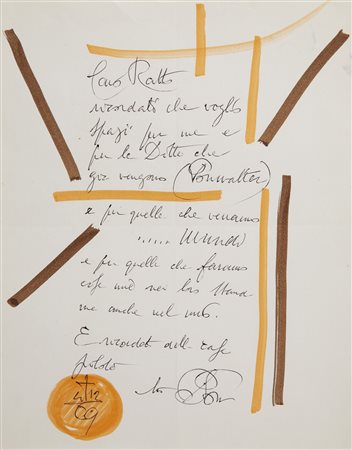 Caro Ratto
ricordati che voglio
spazi per me e
per le Ditte che
già vengono (Ponwalter)
e per quelle che verranno
......
e per quelle che faranno
cose mie nei loro Stand
ma anche nel mio.
E ricordati delle case
pilota